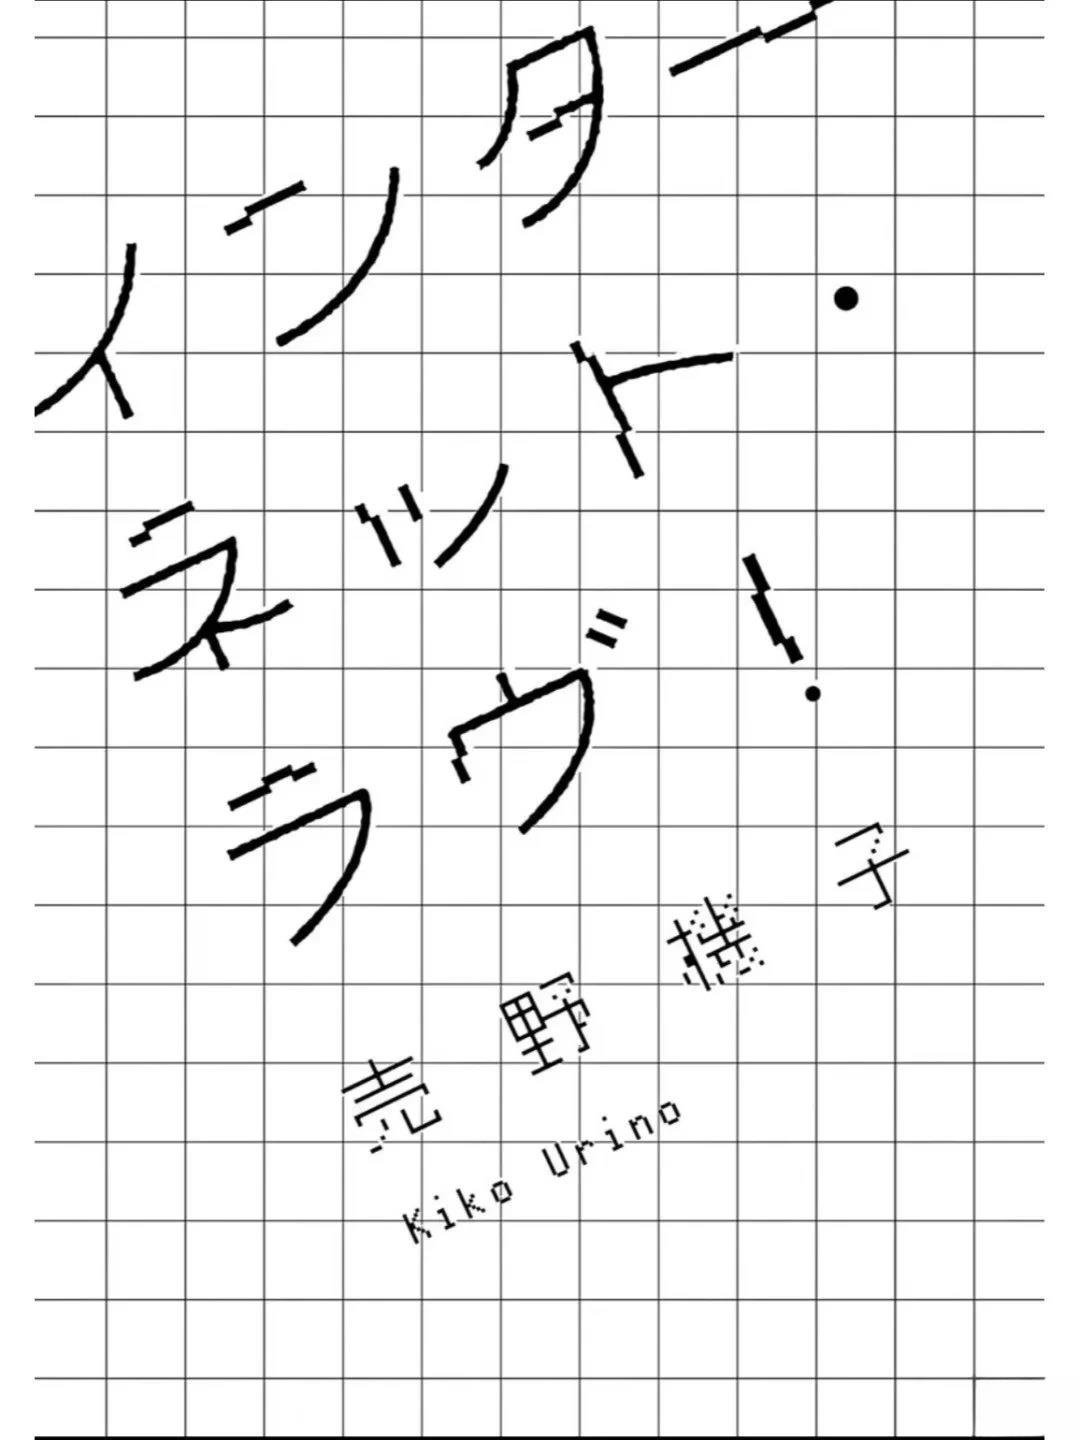 インター
ネット・
ラヴ!
売野機子
Kiko Urino